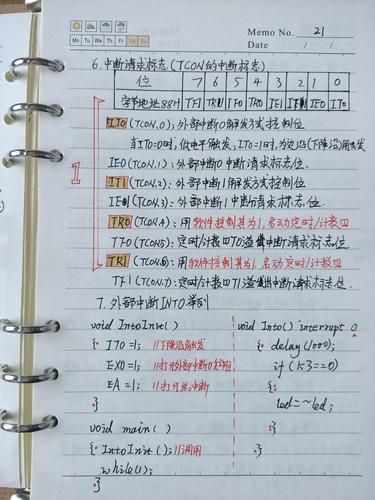 Memo No. 21
Mo Tu We Th Fr Sa Su
Date / /
6. 中断请求标志(TCON的中断标志)
位 7 6 5 4 3 2 1 0
字节地址88H TF1 TR1 TF0 TR0 IE1 IT1 IE0 IT0
IT0(TCON.0): 外部中断0触发方式控制位
当IT0=0时, 低电平触发, IT0=1时, 为边沿(下降沿)触发
IE0(TCON.1): 外部中断0中断请求标志位.
IT1(TCON.2): 外部中断1触发方式控制位
IE1(TCON.3): 外部中断1中断请求标志位.
TR0(TCON.4): 用软件控制其为1, 启动定时/计数四
TF0(TCON.5): 定时/计数四T0溢出中断请求标志位
TR1(TCON.6): 用软件控制其为1. 启动定时/计数四
TF1(TCON.7): 定时/计数四T1溢出中断请求标志位.
7. 外部中断INT0举例
void Int0Init()
{ IT0=1; //下降沿触发
EX0=1; //打开外部中断0
EA=1; //打开总中断
}
void main()
{ Int0Init(); //调用
while(1);
}
void Int0() interrupt 0
{ delay(1000);
if (K3==0)
{
led=~led;
}
}